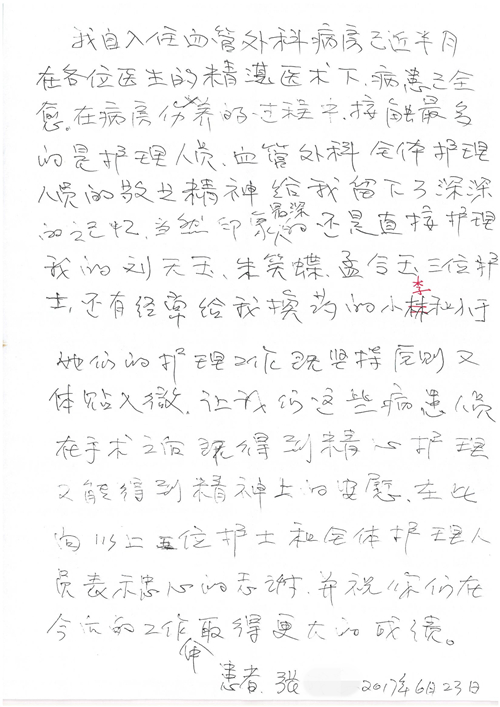 我自入住血管外科病房已近半月
在各位医生的精湛医术下，病患已全
愈。在病房休养的过程中，接触最多
的是护理人员，血管外科全体护理
人员的敬业精神给我留下了深深
的记忆，当然印象最深的还是直接护理
我的刘天玉、朱笑蝶、孟令玉三位护
士，还有经常给我换药的小李和小于
她们的护理工作既坚持原则又
体贴入微，让我们这些病患人员
在手术之后既得到精心护理
又能得到精神上的安慰，在此
向以上五位护士和全体护理人
员表示忠心的感谢，并祝你们在
今后的工作中取得更大的成绩。
患者：张
2017年6月23日